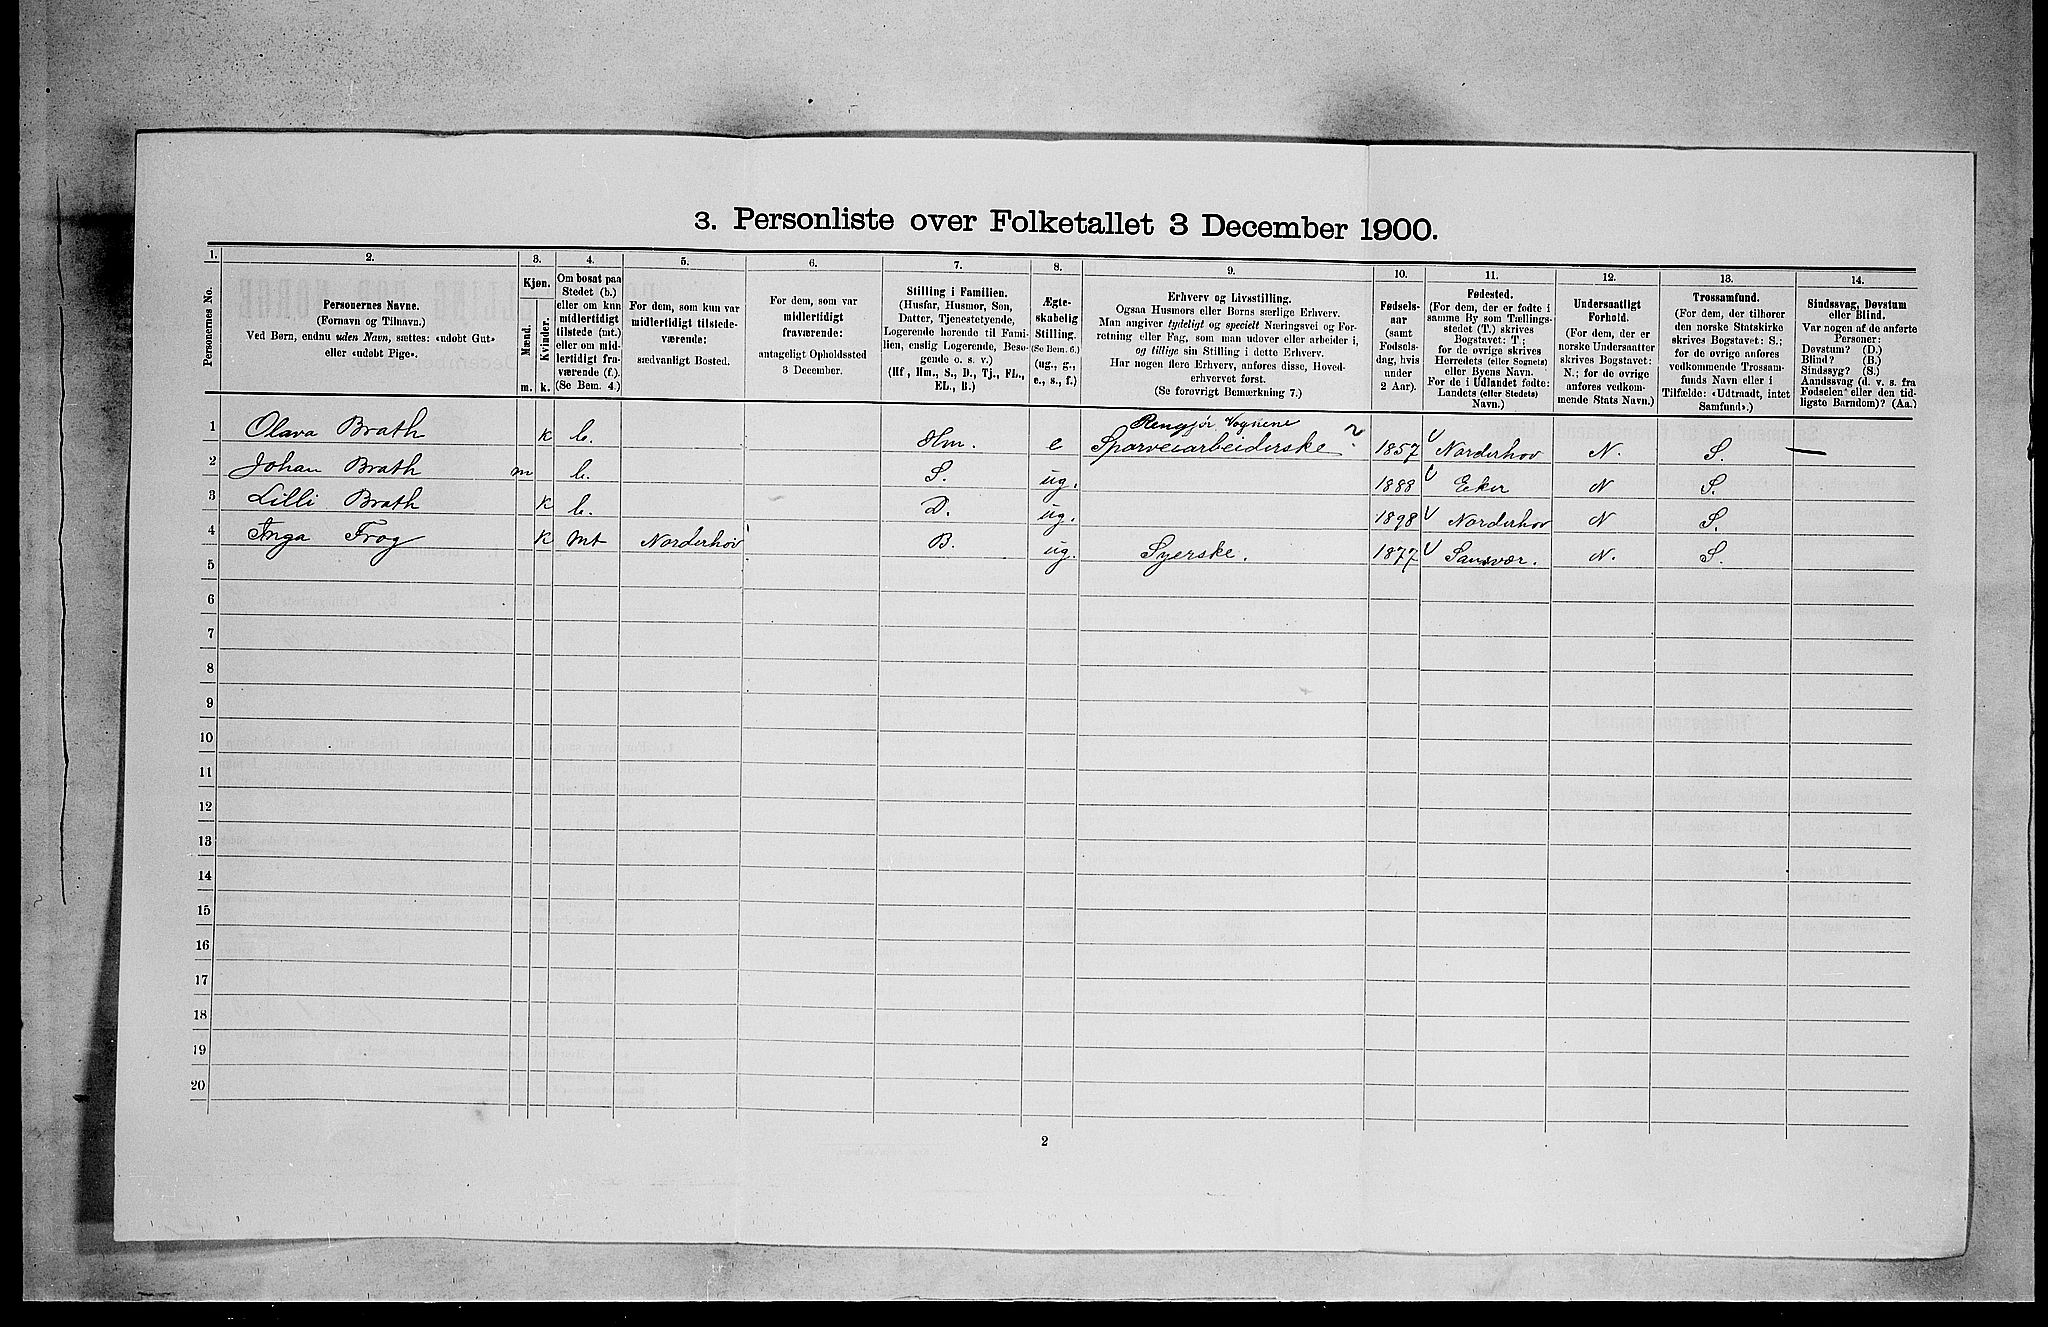 3. Personliste over Folketallet 3 December 1900.
1. 2. 3. 4. 5. 6. 7. 8. 9. 10. 11. 12. 13. 14.
Personernes No.
Personernes Navne.
(Fornavn og Tilnavn.)
Ved Børn, endnu uden Navn, sættes: «udøbt Gut»
eller «udøbt Pige».
Kjøn.
Mænd.
Kvinder.
m. k.
Om bosat paa
Stedet (b.)
eller om kun
midlertidigt
tilstede (mt.)
eller om mid-
lertidigt fra-
værende (f.).
(Se Bem. 4.)
For dem, som kun var
midlertidigt tilstede-
værende:
sædvanligt Bosted.
For dem, som var
midlertidigt
fraværende:
antageligt Opholdssted
3 December.
Stilling i Familien.
(Husfar, Husmor, Søn,
Datter, Tjenestetyende,
Logerende hørende til Fami-
lien, enslig Logerende, Besø-
gende o. s. v.)
(Hf, Hm., S., D., Tj., FL.,
EL., B.)
Ægte-
skabelig
Stilling.
(Se Bem. 6.)
(ug., g.,
e., s., f.)
Erhverv og Livsstilling.
Ogsaa Husmors eller Børns særlige Erhverv.
Man angiver tydeligt og specielt Næringsvei og For-
retning eller Fag, som man udøver eller arbeider i,
og tillige sin Stilling i dette Erhverv.
Har nogen flere Erhverv, anføres disse, Hoved-
erhvervet først.
(Se forøvrigt Bemærkning 7.)
Fødsels-
aar
(samt
Fødsels-
dag, hvis
under
2 Aar).
Fødested.
(For dem, der er fødte i
samme By som Tællings-
stedet (T.) skrives
Bogstavet: T;
for de øvrige skrives
Herredets (eller Sognets)
eller Byens Navn.
For de i Udlandet fødte:
Landets (eller Stedets)
Navn.)
Undersaatligt
Forhold.
(For dem, der er
norske Undersaatter
skrives Bogstavet:
N.; for de øvrige
anføres vedkom-
mende Stats Navn.)
Trossamfund.
(For dem, der tilhører
den norske Statskirke
skrives Bogstavet: S.;
for de øvrige anføres
vedkommende Trossam-
funds Navn eller i
Tilfælde: «Udtraadt, intet
Samfund».)
Sindssvag, Døvstum
eller Blind.
Var nogen af de anførte
Personer:
Døvstum? (D.)
Blind? (B.)
Sindssyg? (S.)
Aandssvag (d. v. s. fra
Fødselen eller den tid-
ligste Barndom)? (Aa.)
Rengjør. Vognene
1 Olava Brath k b. Hm. e Sporveiarbeiderske 1857 Norderhov N. S. —
2 Johan Brath m b. S. ug. 1888 Eker N S.
3 Lilli Brath k b. D. ug. 1898 Norderhov N S.
4 Inga Frog k mt Norderhov B. ug. Syerske. 1877 Sansvær. N. S.
5
6
7
8
9
10
11
12
13
14
15
16
17
18
19
20
2